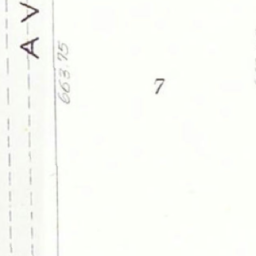 AV
663.75
7